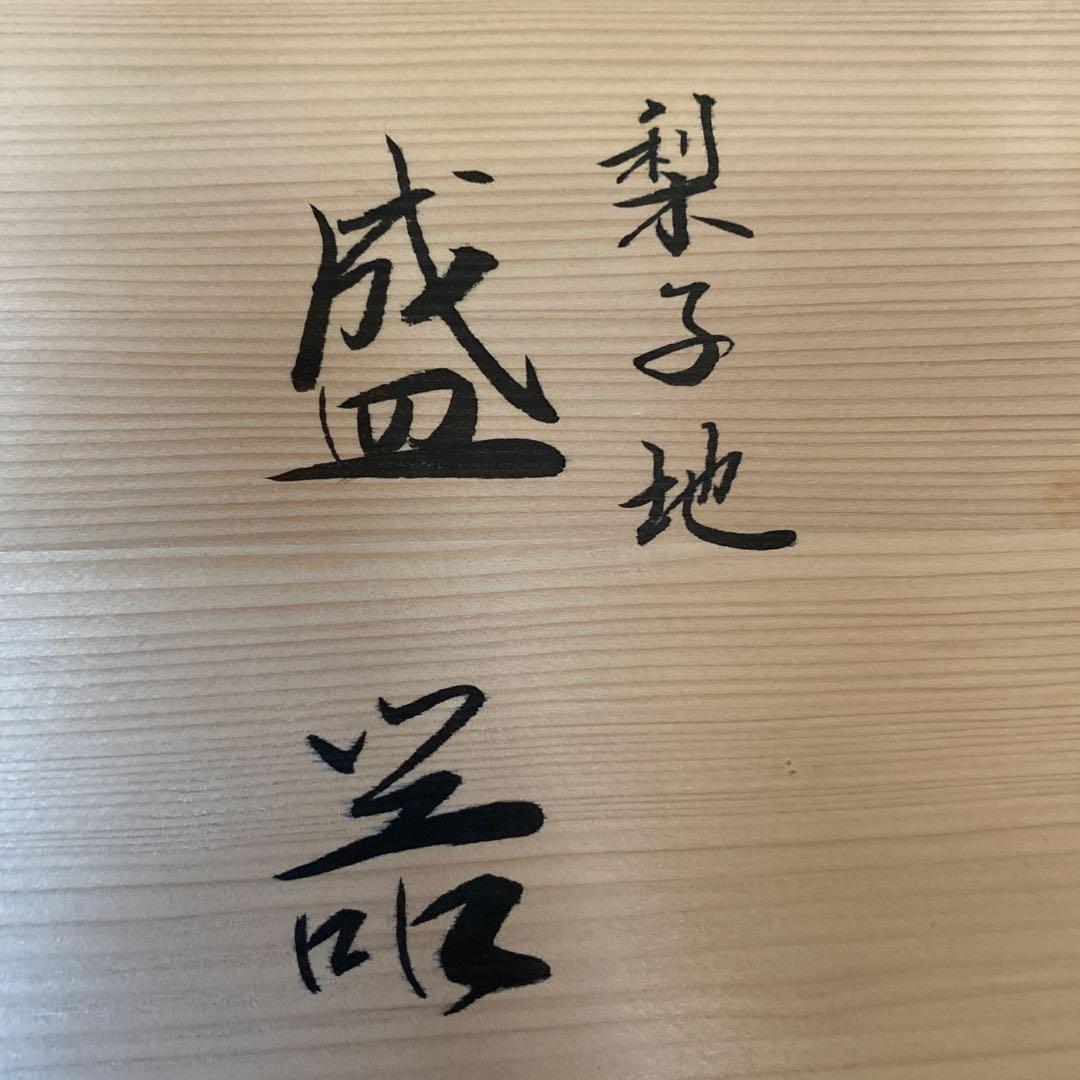 梨子地
盛器